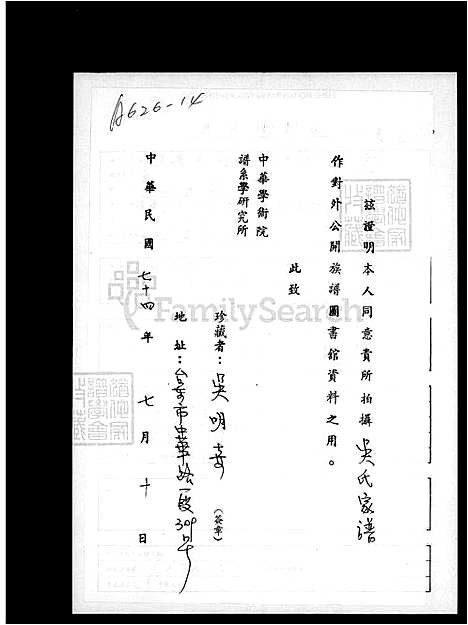 A626-14
茲證明本人同意貴所拍攝吳氏家譜
作對外公開族譜圖書館資料之用。
此致
中華學術院
譜系學研究所
珍藏者：吳明(簽章)
地址：台市中華路一段309號
中華民國七十四年七月十日
FamilySearch